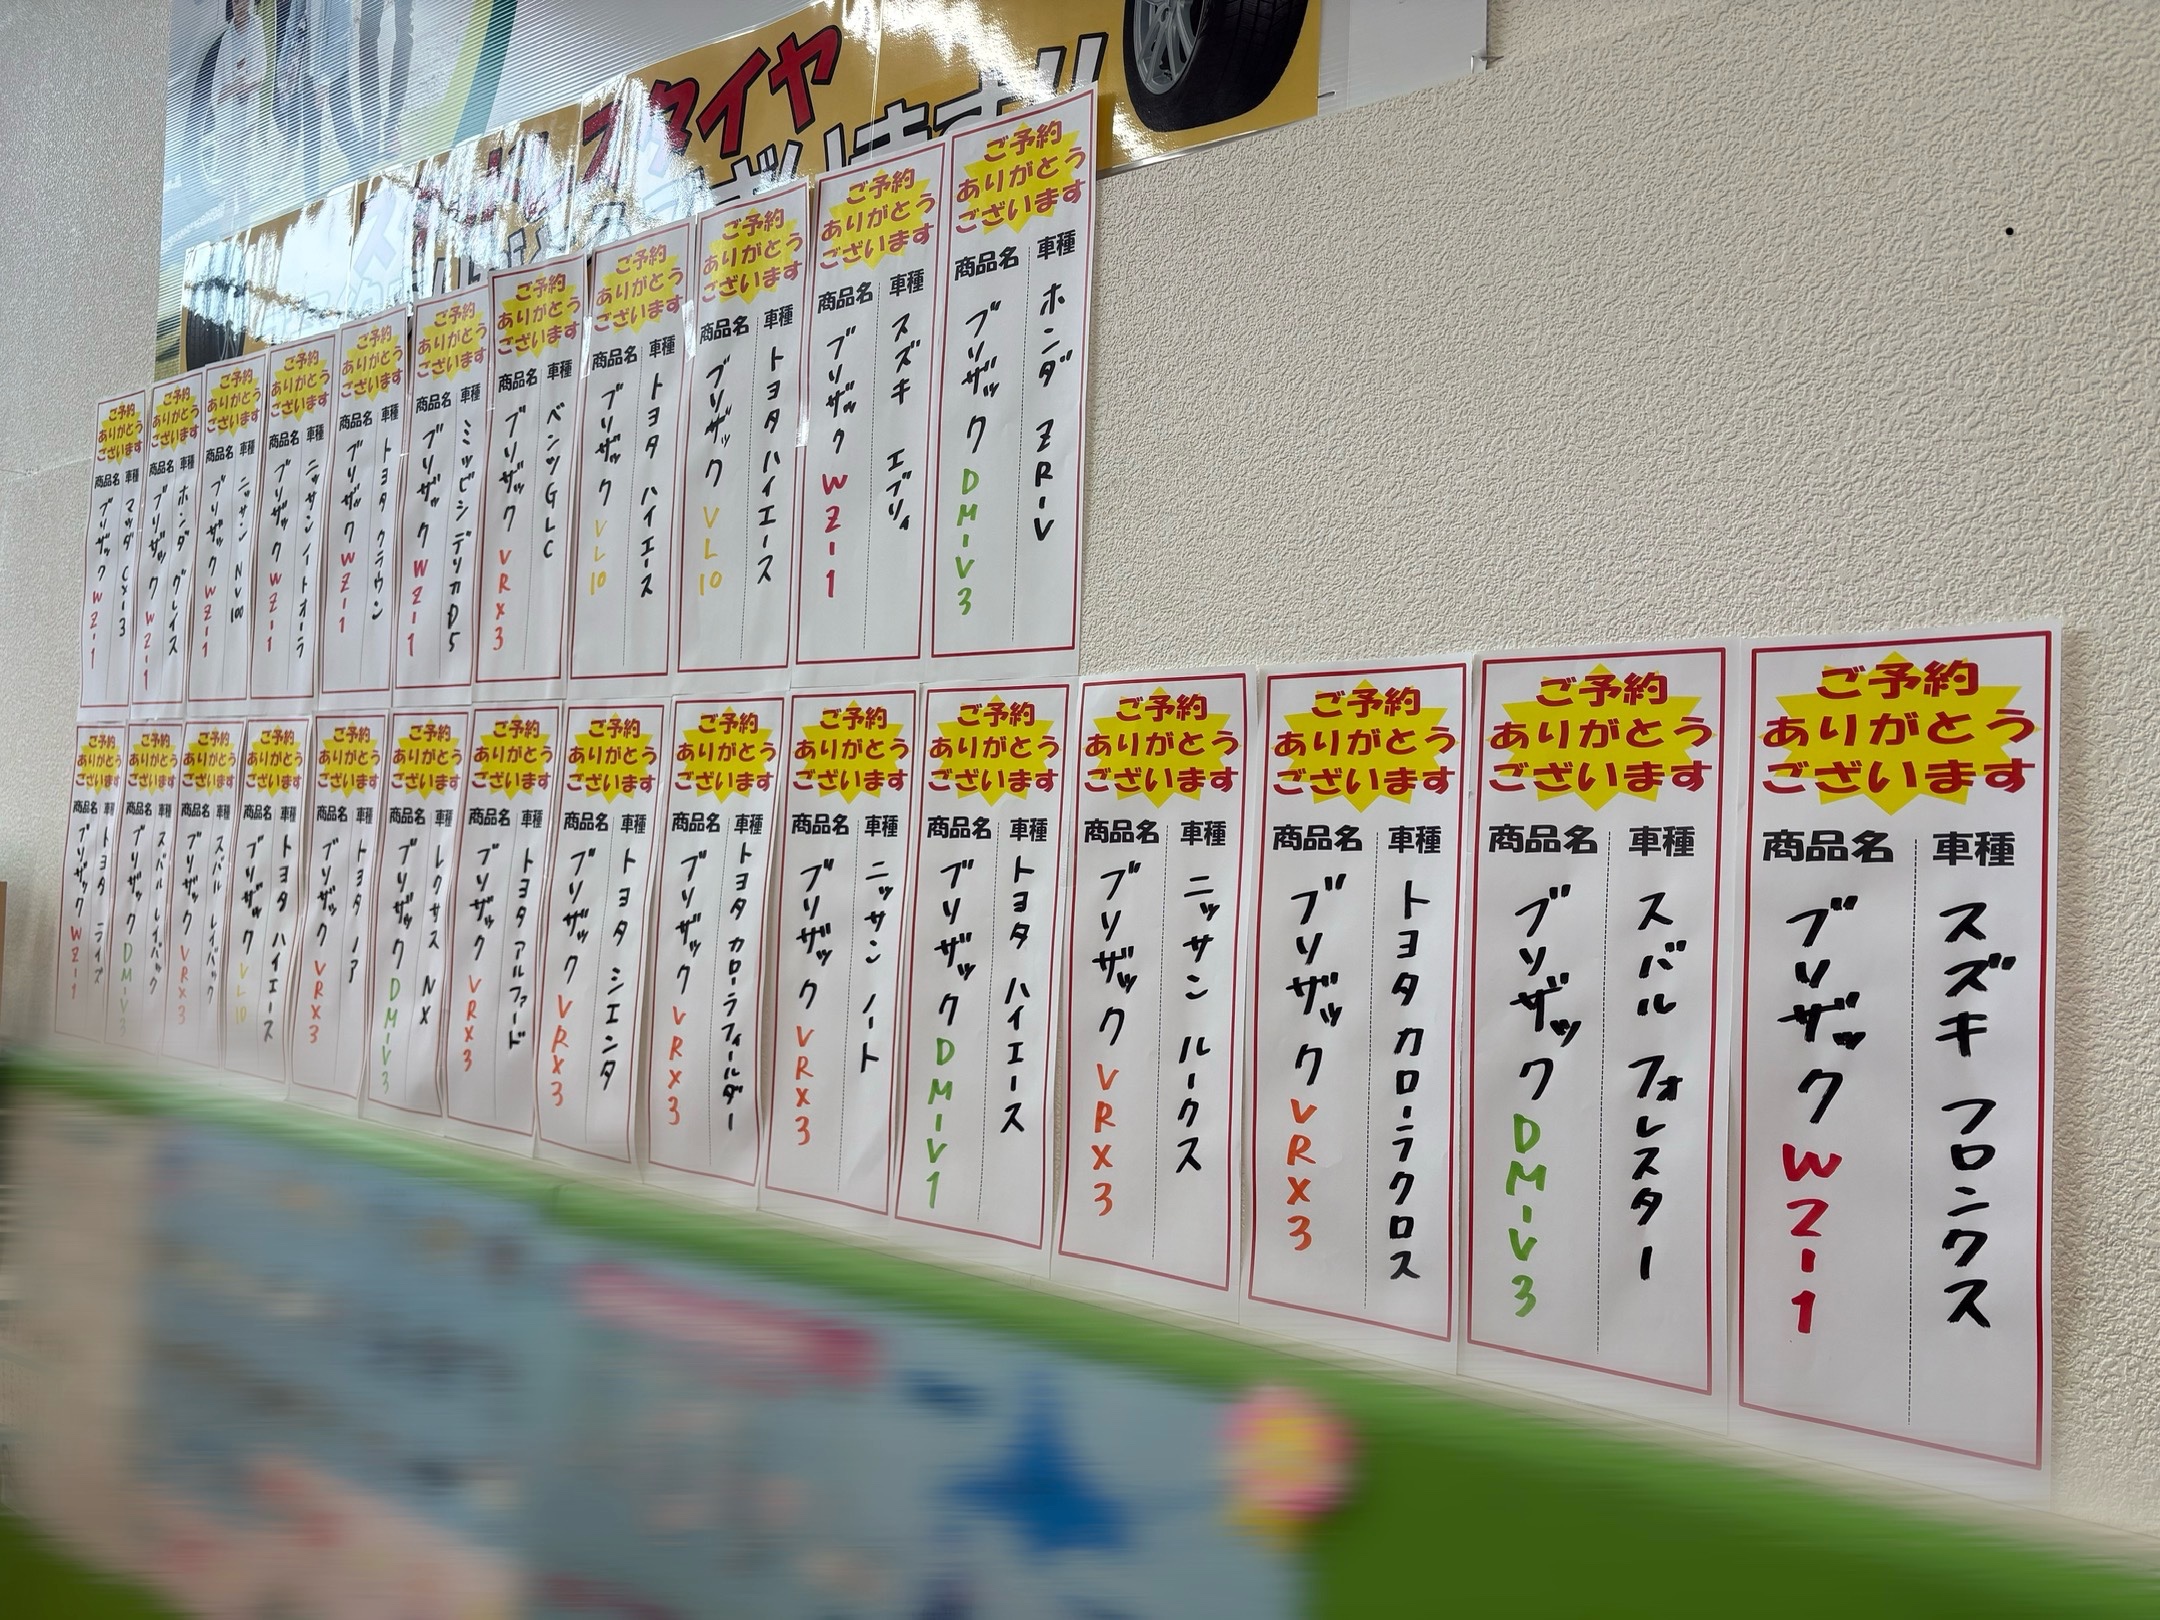 スタイヤ
ご予約
ありがとう
ございます
商品名 車種
ブリザック WZ-1
マツダ CX-3
ご予約
ありがとう
ございます
商品名 車種
ブリザック WZ-1
ホンダ グレイス
ご予約
ありがとう
ございます
商品名 車種
ブリザック WZ-1
ニッサン NV100
ご予約
ありがとう
ございます
商品名 車種
ブリザック WZ-1
ニッサン ノートオーラ
ご予約
ありがとう
ございます
商品名 車種
ブリザック WZ-1
トヨタ クラウン
ご予約
ありがとう
ございます
商品名 車種
ブリザック WZ-1
ミツビシ デリカD5
ご予約
ありがとう
ございます
商品名 車種
ブリザック VRX3
ベンツ GLC
ご予約
ありがとう
ございます
商品名 車種
ブリザック VL10
トヨタ ハイエース
ご予約
ありがとう
ございます
商品名 車種
ブリザック VL10
トヨタ ハイエース
ご予約
ありがとう
ございます
商品名 車種
ブリザック WZ-1
スズキ エブリィ
ご予約
ありがとう
ございます
商品名 車種
ブリザック DM-V3
ホンダ ZR-V
ご予約
ありがとう
ございます
商品名 車種
ブリザック WZ-1
トヨタ ライズ
ご予約
ありがとう
ございます
商品名 車種
ブリザック DM-V3
スバル レイバック
ご予約
ありがとう
ございます
商品名 車種
ブリザック VRX3
スバル レイバック
ご予約
ありがとう
ございます
商品名 車種
ブリザック VL10
トヨタ ハイエース
ご予約
ありがとう
ございます
商品名 車種
ブリザック VRX3
トヨタ ノア
ご予約
ありがとう
ございます
商品名 車種
ブリザック DM-V3
レクサス NX
ご予約
ありがとう
ございます
商品名 車種
ブリザック VRX3
トヨタ アルファード
ご予約
ありがとう
ございます
商品名 車種
ブリザック VRX3
トヨタ シエンタ
ご予約
ありがとう
ございます
商品名 車種
ブリザック VRX3
トヨタ カローラフィールダー
ご予約
ありがとう
ございます
商品名 車種
ブリザック VRX3
ニッサン ノート
ご予約
ありがとう
ございます
商品名 車種
ブリザック DM-V1
トヨタ ハイエース
ご予約
ありがとう
ございます
商品名 車種
ブリザック VRX3
ニッサン ルークス
ご予約
ありがとう
ございます
商品名 車種
ブリザック VRX3
トヨタ カローラクロス
ご予約
ありがとう
ございます
商品名 車種
ブリザック DM-V3
スバル フォレスター
ご予約
ありがとう
ございます
商品名 車種
ブリザック WZ-1
スズキ フロンクス